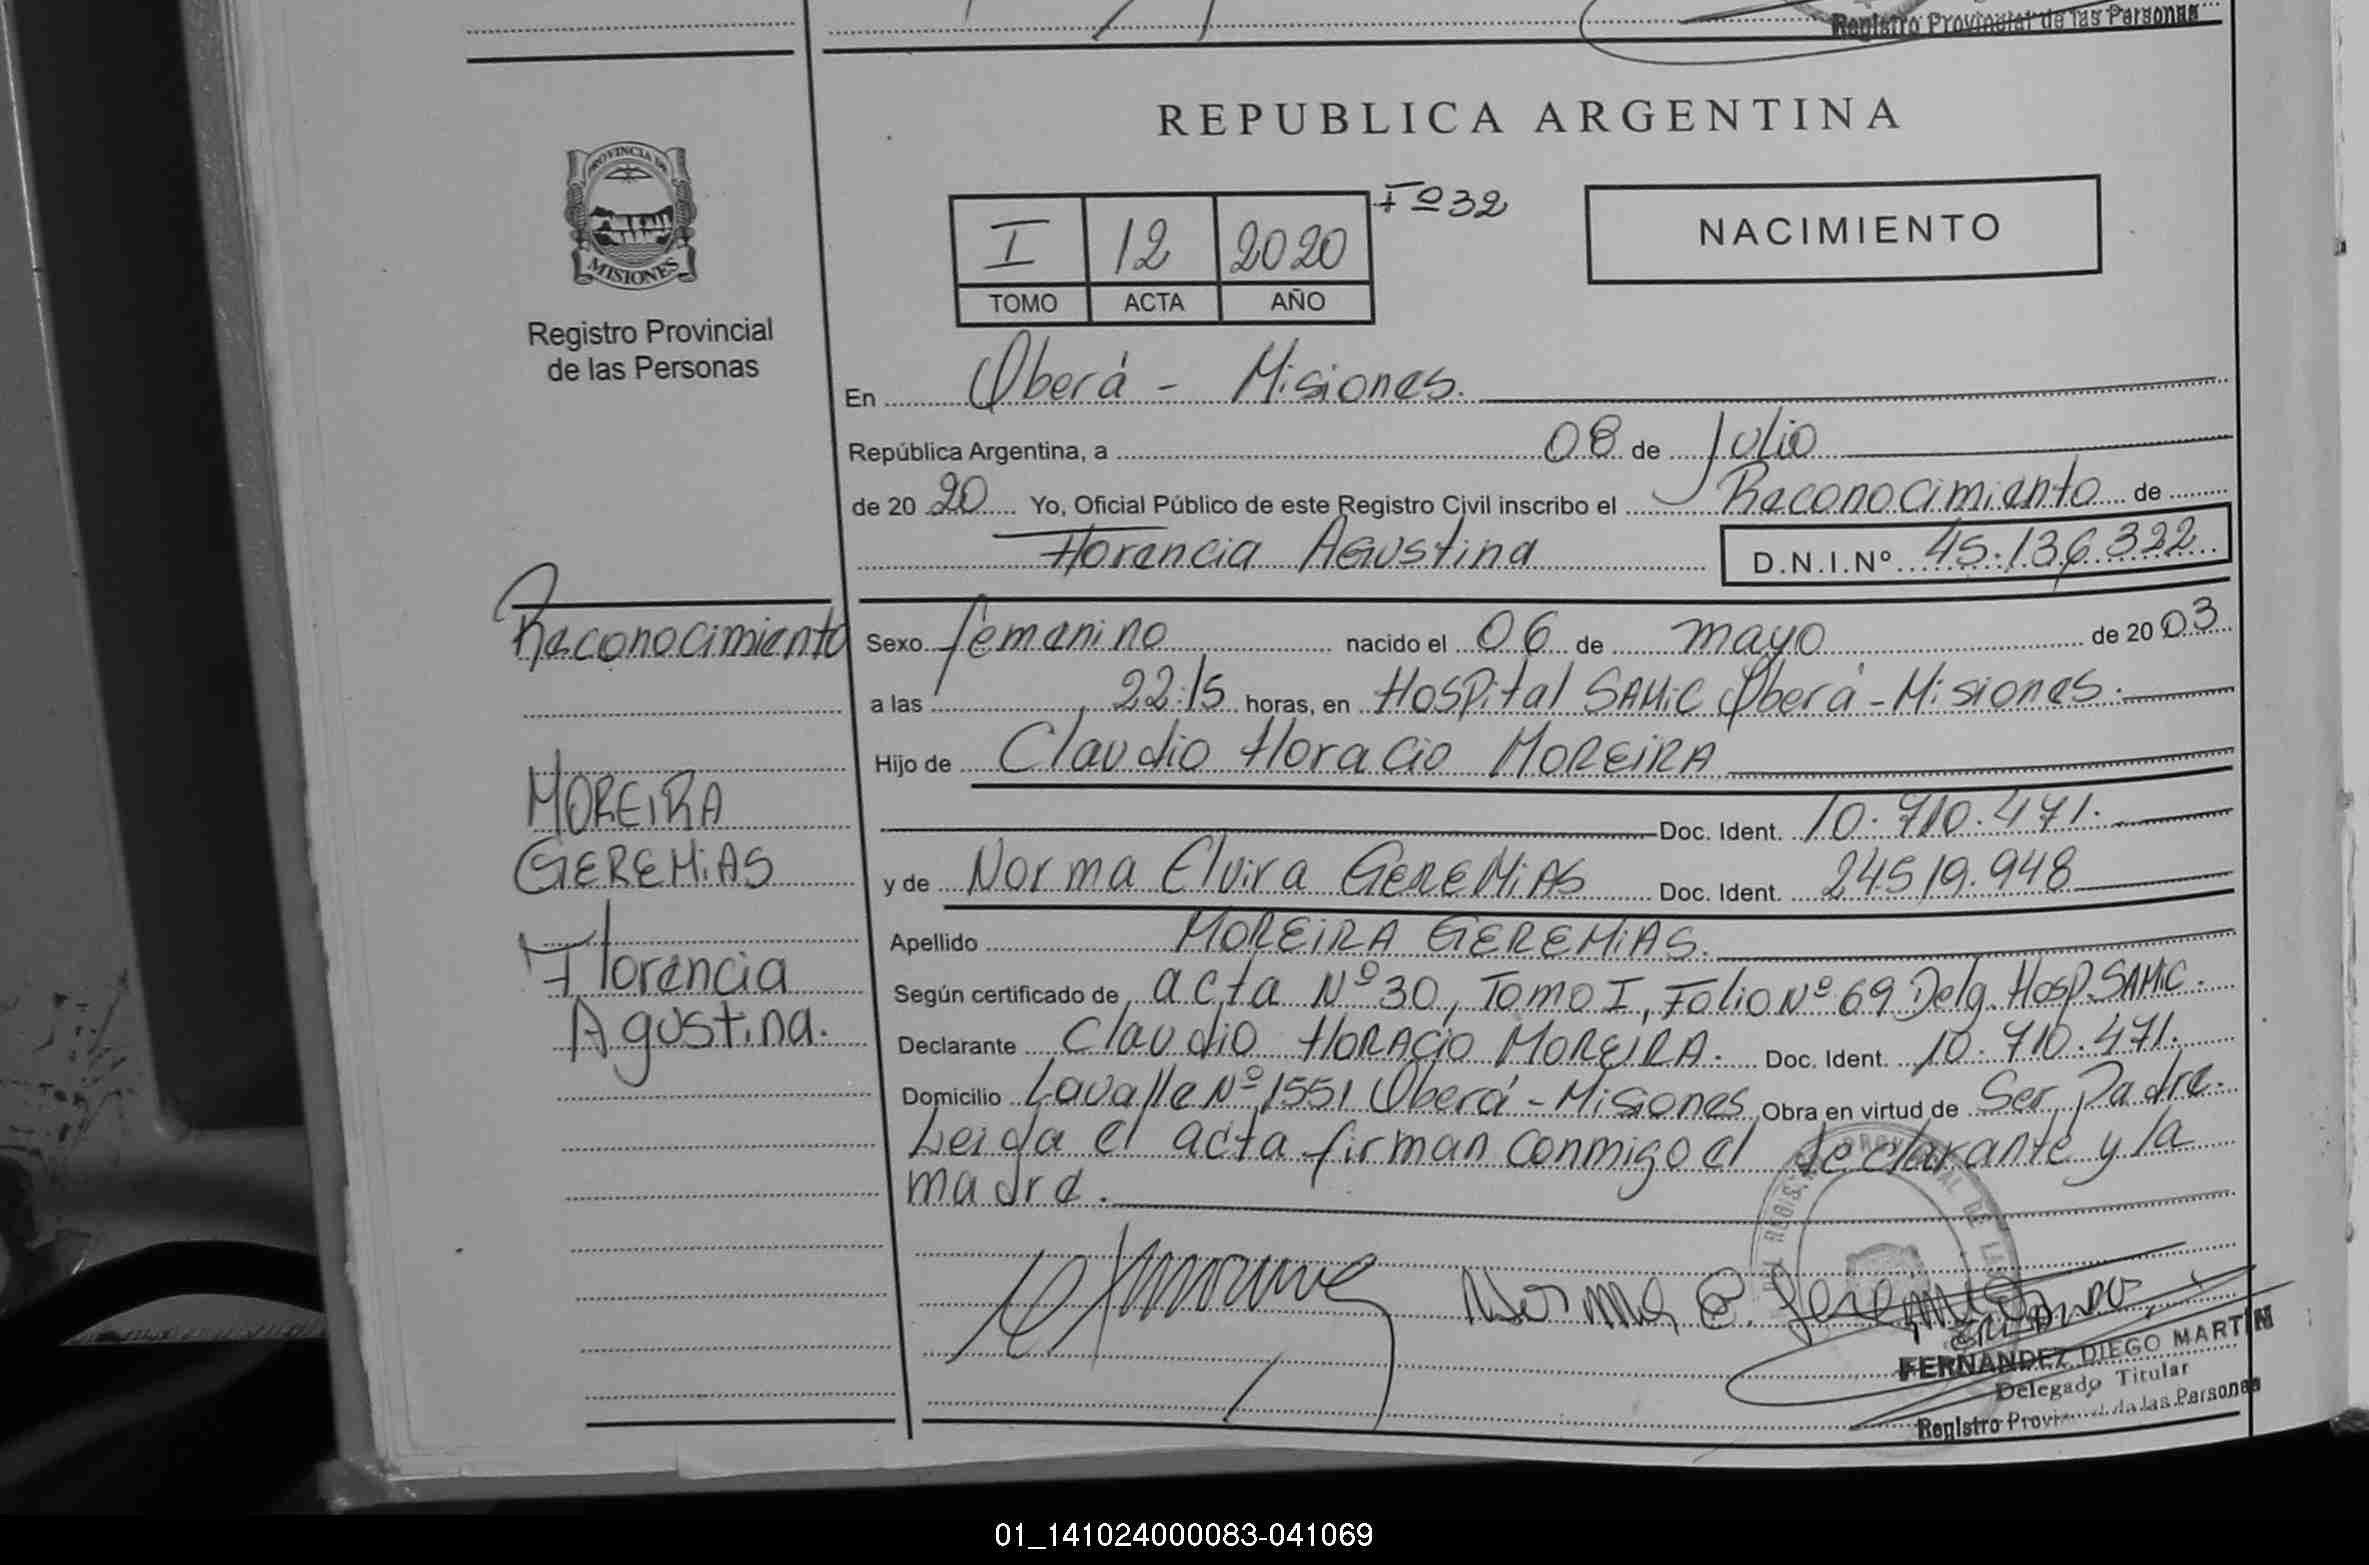 Registro Provincial de las Personas
REPUBLICA ARGENTINA
PROVINCIA DE
MISIONES
Registro Provincial
de las Personas
I 12 2020 Fº 32
TOMO ACTA AÑO
NACIMIENTO
En Oberá - Misiones.
República Argentina, a 08 de Julio
de 20 20 Yo, Oficial Público de este Registro Civil inscribo el Reconocimiento de
Florencia Agustina D.N.I.Nº 45.136.322
Reconocimiento
MOREIRA
GEREMIAS
Florencia
Agustina.
Sexo femenino nacido el 06 de mayo de 20 03
a las 22:15 horas, en Hospital SAMIC Oberá - Misiones.
Hijo de Claudio Horacio MOREIRA
Doc. Ident. 10.710.471.
y de Norma Elvira GEREMIAS Doc. Ident. 24519.948
Apellido MOREIRA GEREMIAS.
Según certificado de acta Nº 30, Tomo I, Folio Nº 69 Delg. Hosp. SAMIC.
Declarante Claudio HORACIO MOREIRA. Doc. Ident. 10.710.471.
Domicilio Lavalle Nº 1551 Oberá - Misiones Obra en virtud de Ser Padre.
Leida el acta firman conmigo el declarante y la
madre.
Norma E. Geremias
FERNANDEZ DIEGO MARTIN
Delegado Titular
Registro Provincial de las Personas
01_141024000083-041069